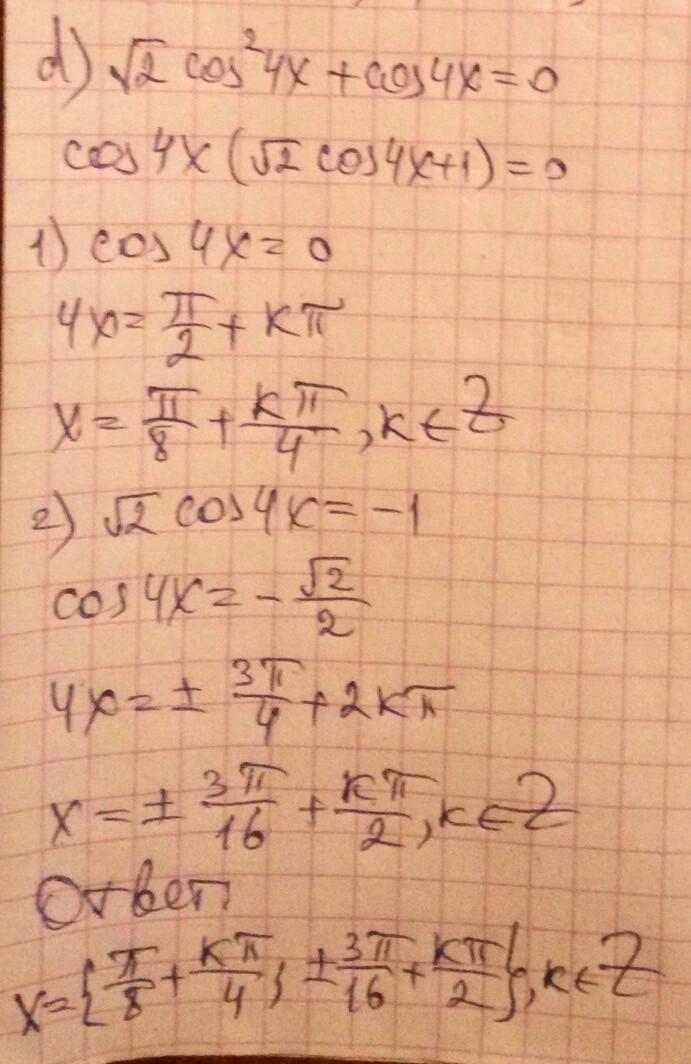 d) √2 cos²4x + cos4x = 0
cos4x (√2 cos4x+1) = 0
1) cos 4x = 0
4x = π/2 + kπ
x = π/8 + kπ/4, k ∈ Z
2) √2 cos4x = -1
cos4x = - √2/2
4x = ± 3π/4 + 2kπ
x = ± 3π/16 + kπ/2, k ∈ Z
Ответ:
x = {π/8 + kπ/4; ± 3π/16 + kπ/2}, k ∈ Z